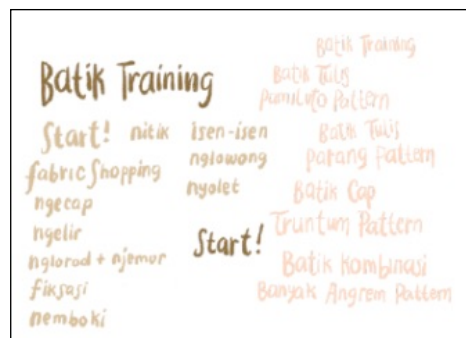 Batik Training
Start! nitik isen-isen
fabric Shopping nglowong
ngecap nyolet
ngelir
Start!
nglorod + njemur
fiksasi
nemboki
Batik Training
Batik Tulis
Pamiluto Pattern
Batik Tulis
Parang Pattern
Batik Cap
Truntum Pattern
Batik Kombinasi
Banyak Angrem Pattern